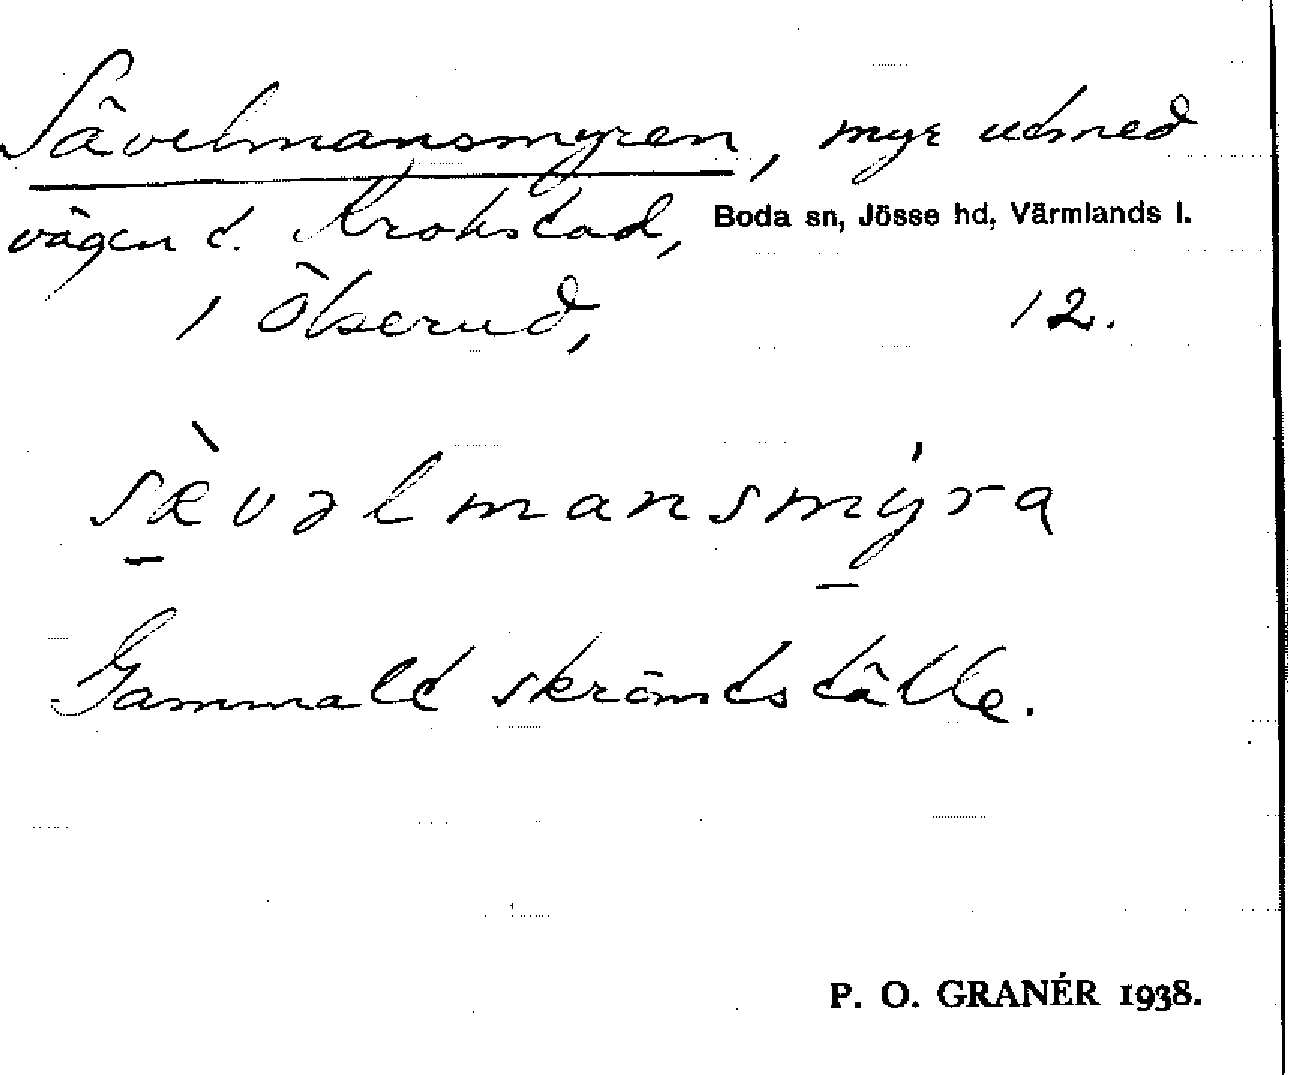 Sävelmansmyren, myr utmed
vägen t. Krokstad, Boda sn, Jösse hd, Värmlands l.
1 Ölserud, 12.
sæ̀vəlmansmýra
Gammalt skrömtställe.
P. O. GRANÉR 1938.